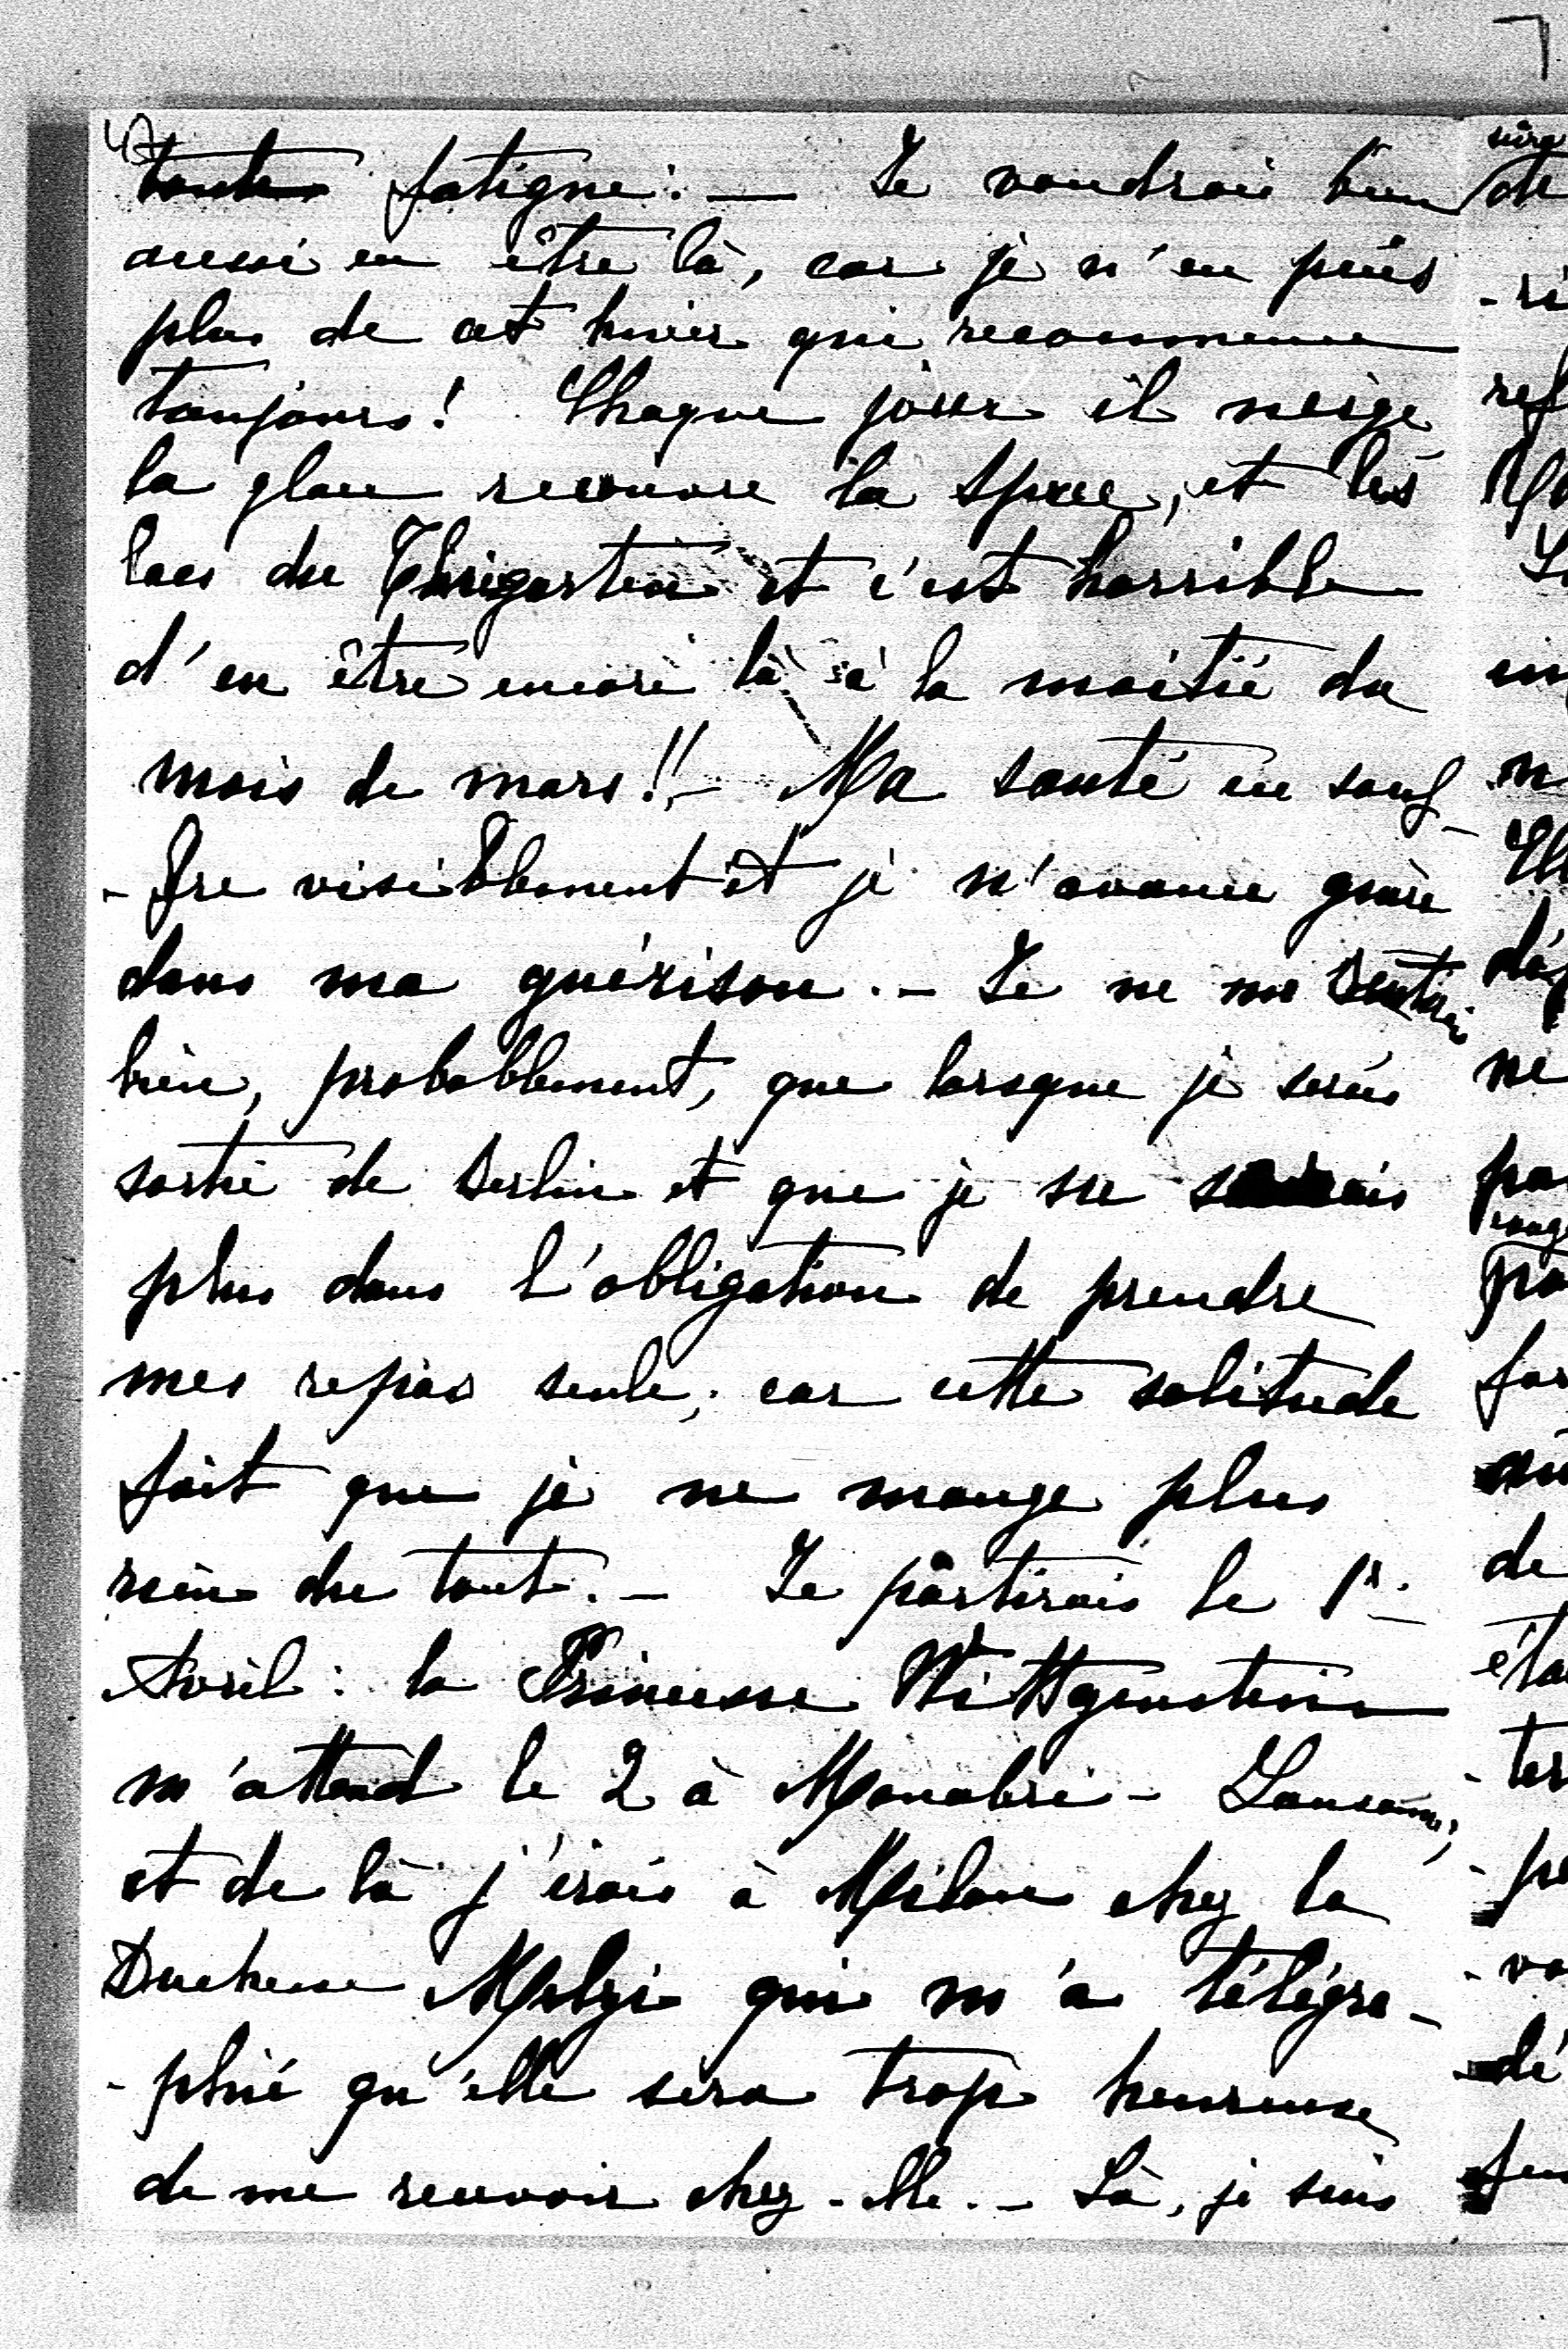 toute fatigue. — Je voudrais bien
aussi en être là, car je n'en puis
plus de cet hiver qui recommence
toujours! Chaque jour il neige
la glace recouvre la Spree, et les
lacs du Thiergarten et c'est horrible
d'en être encore là à la moitié du
mois de mars!! - Ma santé en souf-
-fre visiblement et je n'avance guère
dans ma guérison. - Je ne me sentirai
bien, probablement, que lorsque je serais
sortie de Berlin et que je ne serais
plus dans l'obligation de prendre
mes repas seule; car cette solitude
fait que je ne mange plus
rien du tout. - Je partirais le 1r.
Avril: la Princesse Wittgenstein
m'attend le 2 à Monabri - Lausanne,
et de là j'irais à Milan chez la
Duchesse Melzi qui m'a télégra-
-phié qu'elle sera trop heureuse
de me recevoir chez-elle. - Là, je suis